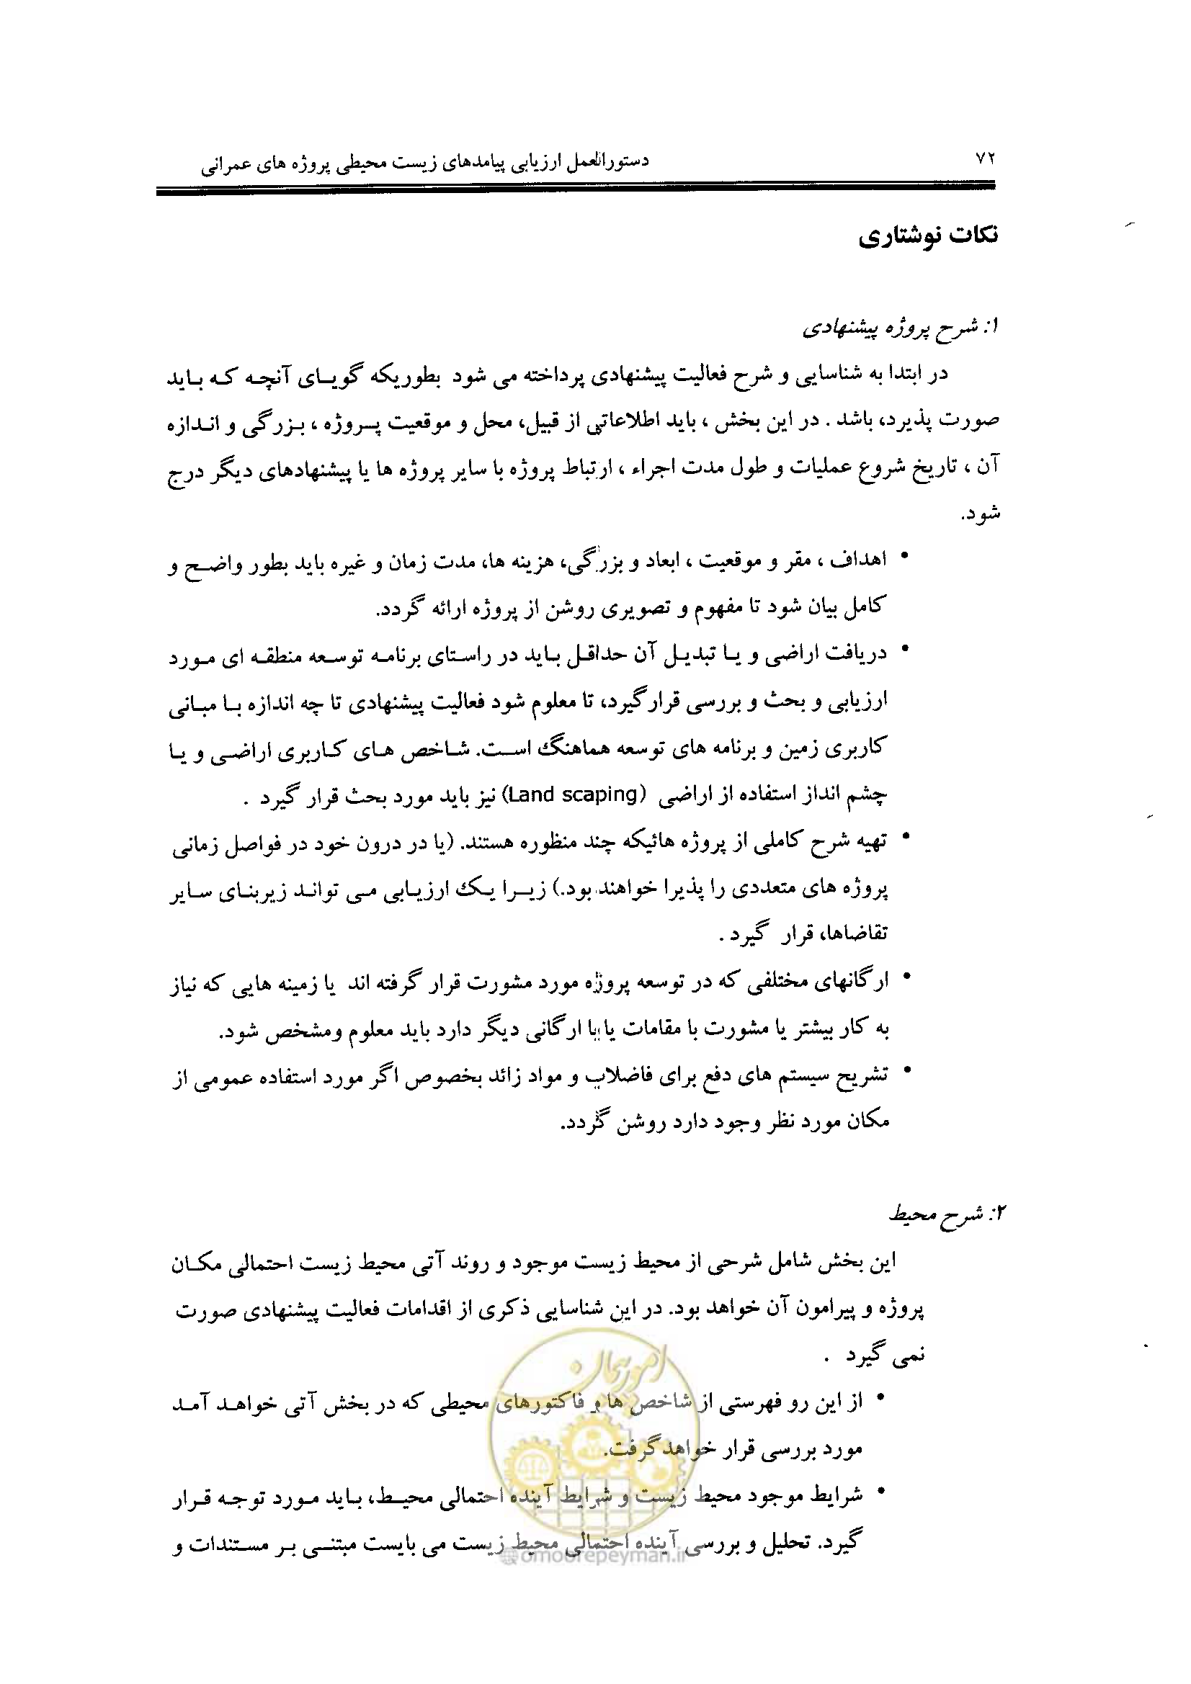 ۷۲
دستورالعمل ارزیابی پیامدهای زیست محیطی پروژه های عمرانی
نکات نوشتاری
۱: شرح پروژه پیشنهادی
در ابتدا به شناسایی و شرح فعالیت پیشنهادی پرداخته می شود بطوریکه گویای آنچه که باید
صورت پذیرد، باشد . در این بخش ، باید اطلاعاتی از قبیل، محل و موقعیت پروژه ، بزرگی و اندازه
آن ، تاریخ شروع عملیات و طول مدت اجراء ، ارتباط پروژه با سایر پروژه ها یا پیشنهادهای دیگر درج
شود.
• اهداف ، مقر و موقعیت ، ابعاد و بزرگی، هزینه ها، مدت زمان و غیره باید بطور واضح و
کامل بیان شود تا مفهوم و تصویری روشن از پروژه ارائه گردد.
• دریافت اراضی و یا تبدیل آن حداقل باید در راستای برنامه توسعه منطقه ای مورد
ارزیابی و بحث و بررسی قرارگیرد، تا معلوم شود فعالیت پیشنهادی تا چه اندازه با مبانی
کاربری زمین و برنامه های توسعه هماهنگ است. شاخص های کاربری اراضی و یا
چشم انداز استفاده از اراضی (Land scaping) نیز باید مورد بحث قرار گیرد .
• تهیه شرح کاملی از پروژه هائیکه چند منظوره هستند. (یا در درون خود در فواصل زمانی
پروژه های متعددی را پذیرا خواهند بود.) زیرا یک ارزیابی می تواند زیربنای سایر
تقاضاها، قرار گیرد .
• ارگانهای مختلفی که در توسعه پروژه مورد مشورت قرار گرفته اند یا زمینه هایی که نیاز
به کار بیشتر یا مشورت با مقامات یا با ارگانی دیگر دارد باید معلوم ومشخص شود.
• تشریح سیستم های دفع برای فاضلاب و مواد زائد بخصوص اگر مورد استفاده عمومی از
مکان مورد نظر وجود دارد روشن گردد.
۲: شرح محیط
این بخش شامل شرحی از محیط زیست موجود و روند آتی محیط زیست احتمالی مکان
پروژه و پیرامون آن خواهد بود. در این شناسایی ذکری از اقدامات فعالیت پیشنهادی صورت
نمی گیرد .
• از این رو فهرستی از شاخص ها و فاکتورهای محیطی که در بخش آتی خواهد آمد
مورد بررسی قرار خواهدگرفت.
• شرایط موجود محیط زیست و شرایط آینده احتمالی محیط، باید مورد توجه قرار
گیرد. تحلیل و بررسی آینده احتمالی محیط زیست می بایست مبتنی بر مستندات و
امور پیمان
@omoorepeyman.ir